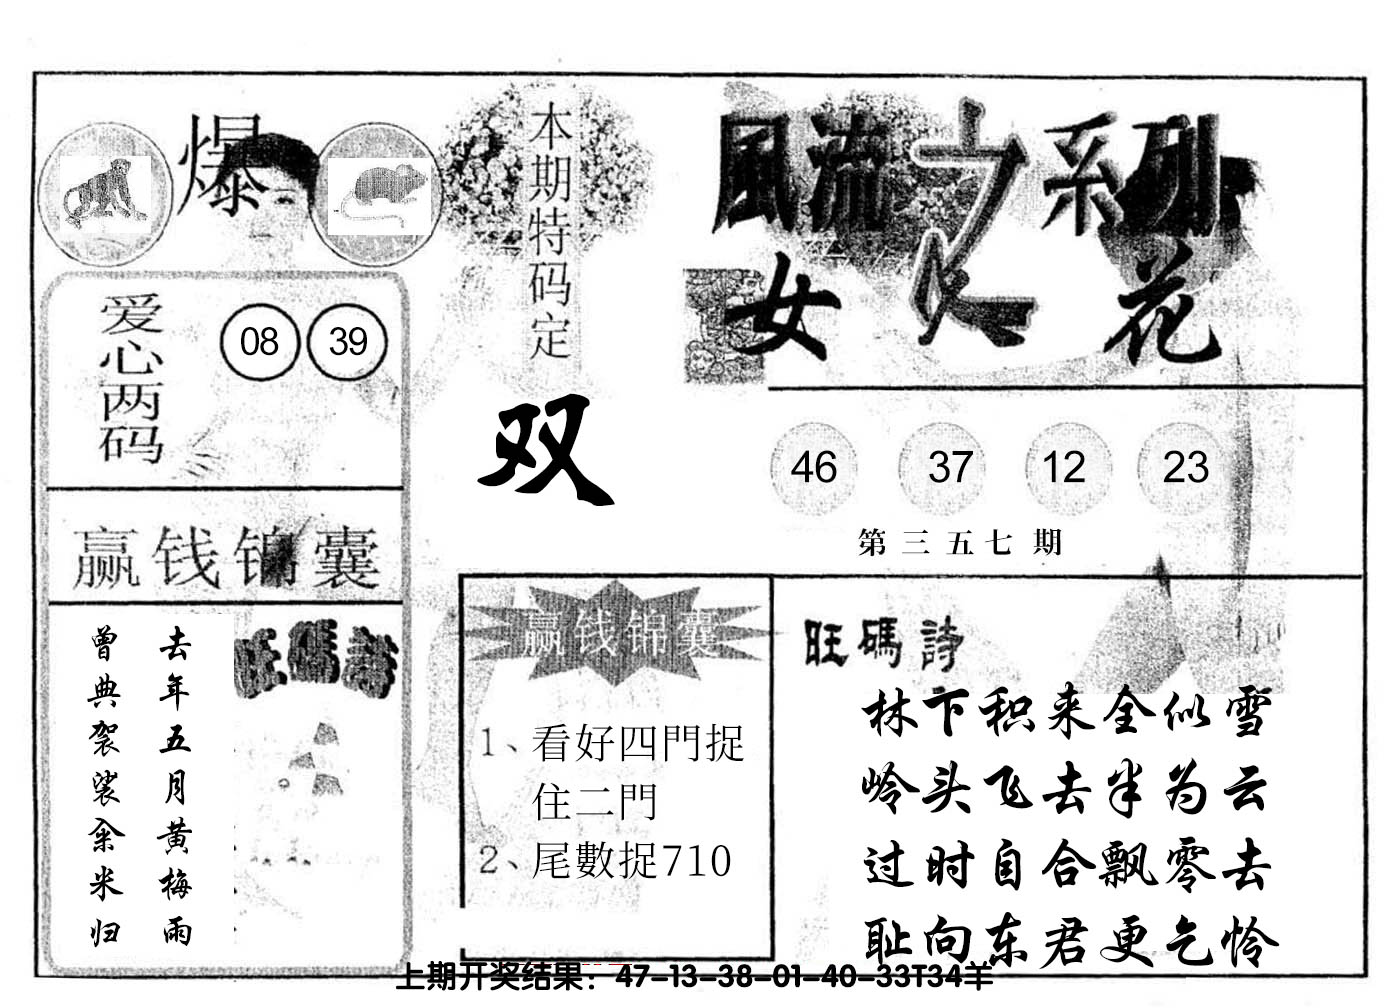 爆
本期特码定
双
風流之系列
女人花
爱心两码
08 39
46 37 12 23
第三五七期
赢钱锦囊
去年五月黄梅雨
曾典袈裟籴米归
旺碼詩
赢钱锦囊
1、看好四門捉
住二門
2、尾數捉710
旺碼詩
林下积来全似雪
岭头飞去半为云
过时自合飘零去
耻向东君更乞怜
上期开奖结果：47-13-38-01-40-33T34羊